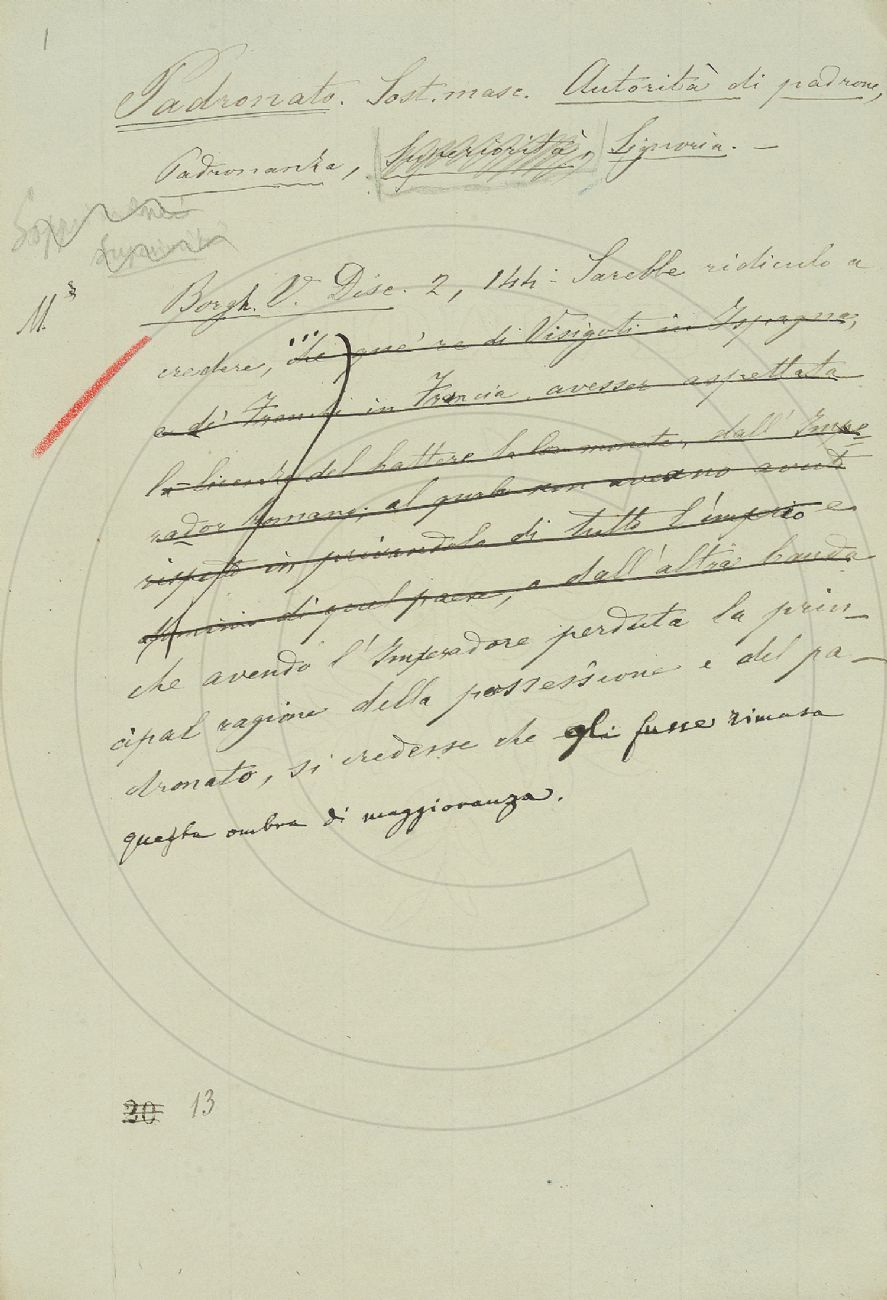 1
Padronato. Sost. masc. Autorità di padrone,
Padronanza, Superiorità, Signoria. —
Borgh. V. Disc. 2, 144: Sarebbe ridicolo a
credere, ... che que' re di Visigoti in Ispagna,
e di Franchi in Francia avesser aspettata
la licenza del battere la lor moneta, dall' Impe
rador Romano, al quale non avevano avuto
rispetto in privandolo di tutto l'imperio e
dominio di quel paese, e dall' altra banda
che avendo l' Imperadore perduta la prin-
cipal ragione della possessione e del pa-
dronato, si credesse che gli fusse rimasa
questa ombra di maggioranza.
20 13